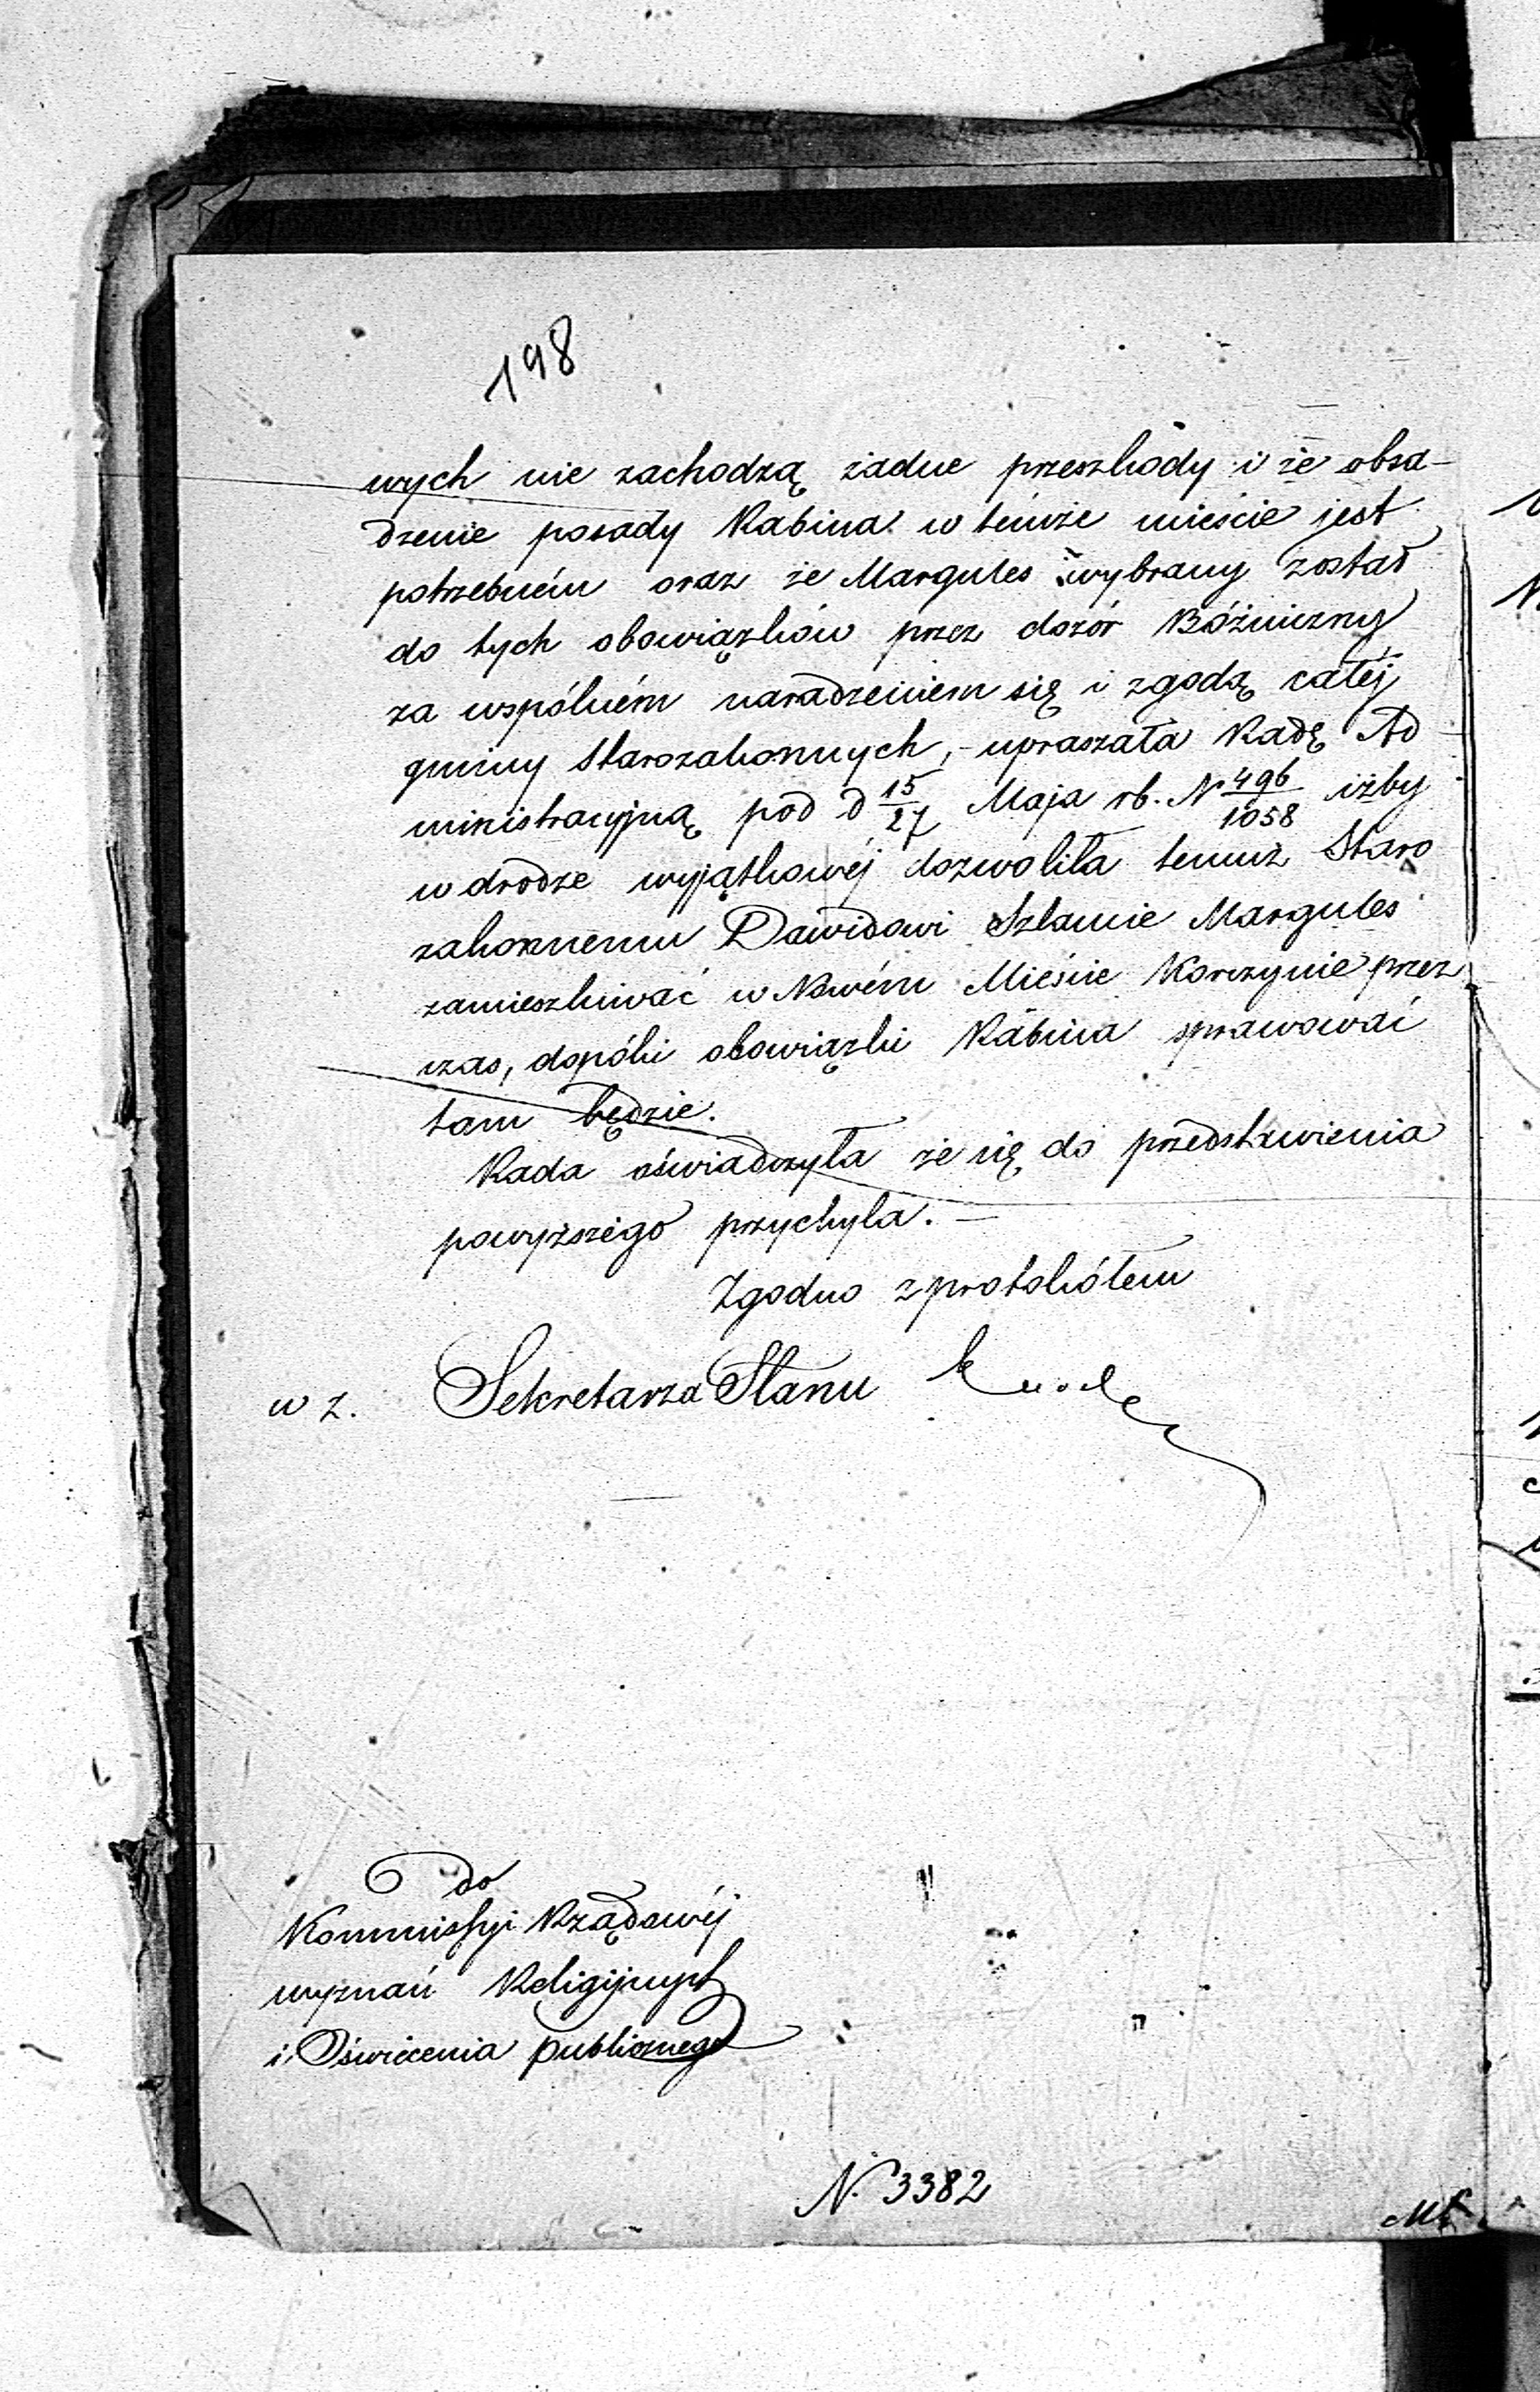 198
wych nie zachodzą żadne przeszkody i że obsa-
dzenie posady Rabina w témże mieście jest
potrzebném oraz że Margules wybrany został
do tych obowiązków przez dozór Bóżniczny
za wspólném naradzeniem się i zgodą całéj
gminy Starozakonnych, - upraszała Radę Ad
ministracyjną pod d 15/27 Maja rb. N 496/1058 iżby
w drodze wyjątkowéj dozwoliła temuż Staro
zakonnemu Dawidowi Szlamie Margules
zamieszkiwać w Nowém Mieście Korczynie przez
czas, dopóki obowiązki Rabina sprawować
tam będzie.
Rada oświadczyła że się do przedstawienia
powyższego przychyla. —
Zgodno z protokółem
w z. Sekretarza Stanu
do
Kommissyi Rządowéj
wyznań Religijnych
i Oświecenia publicznego
N. 3382